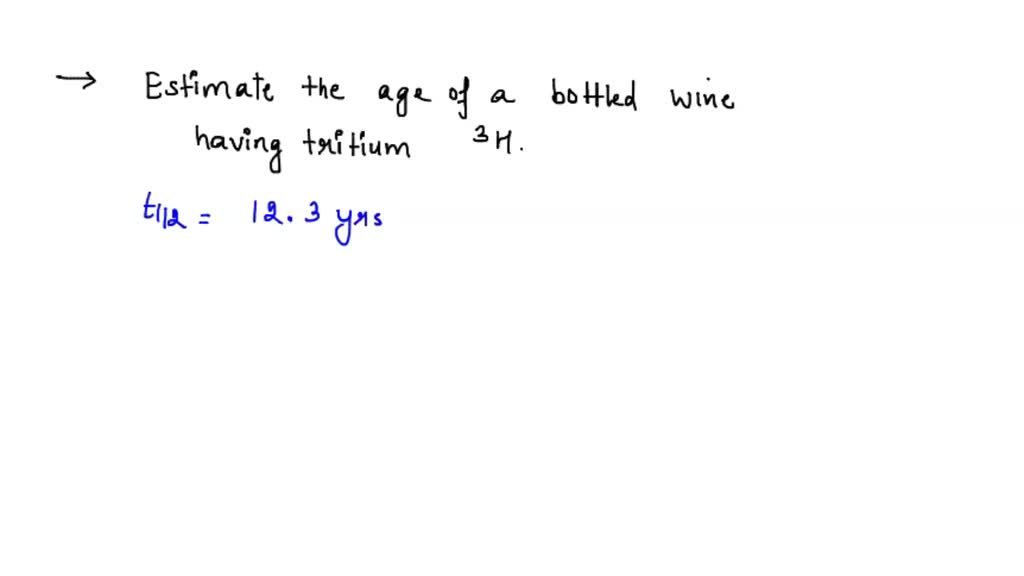 → Estimate the age of a bottled wine
having tritium ³H.
t1/2 = 12.3 yrs